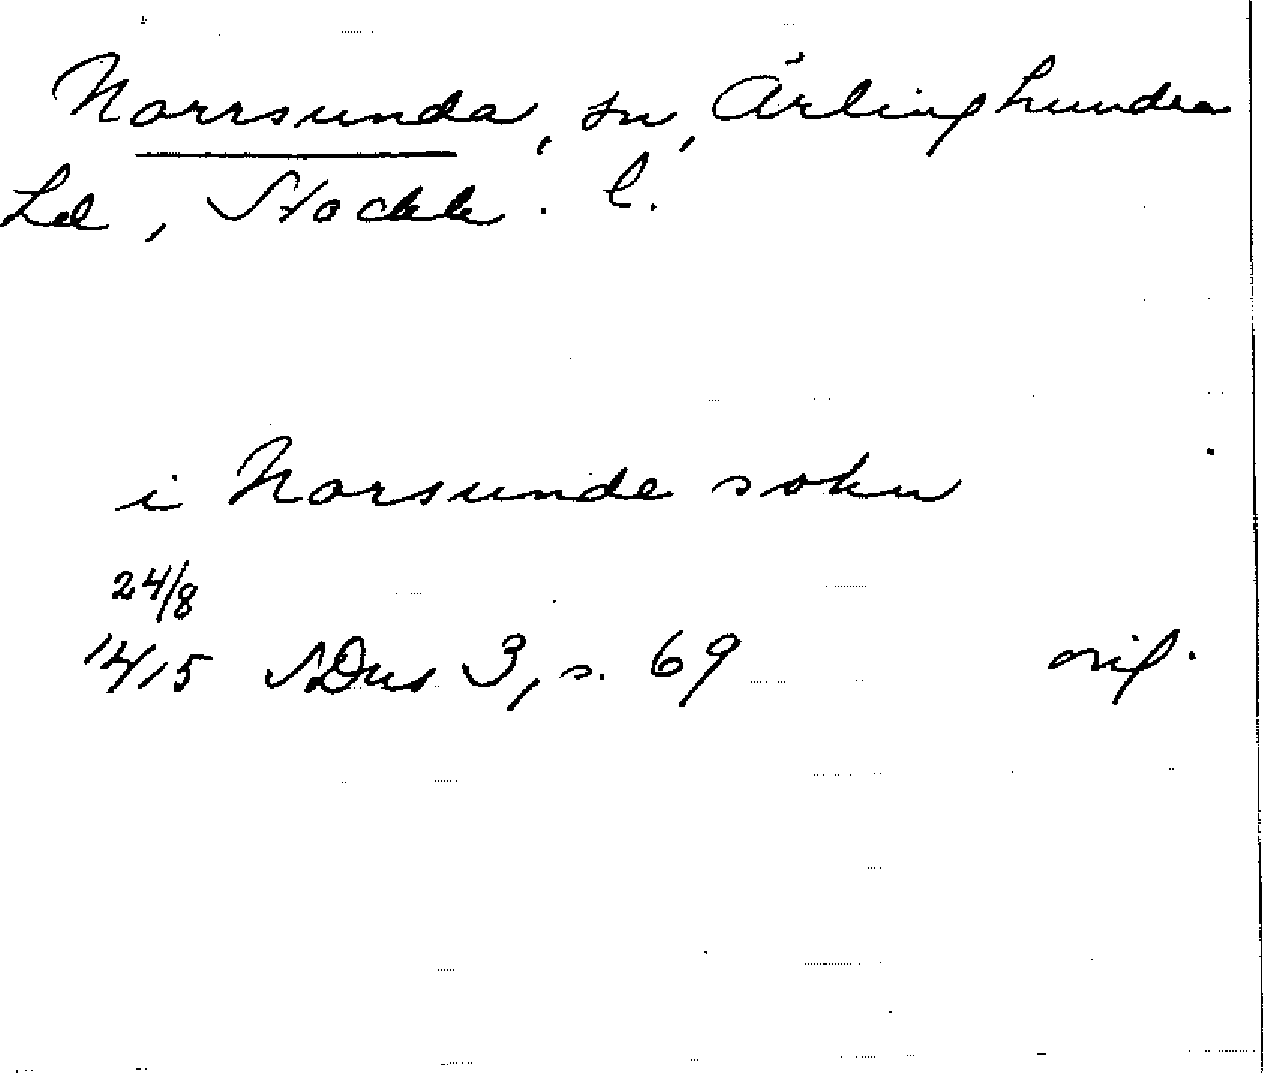 Norrsunda, sn, Ärlinghundra
hd, Stockh. l.
i Norsunde sokn
24/8
1415 SDns 3, s. 69 orig.